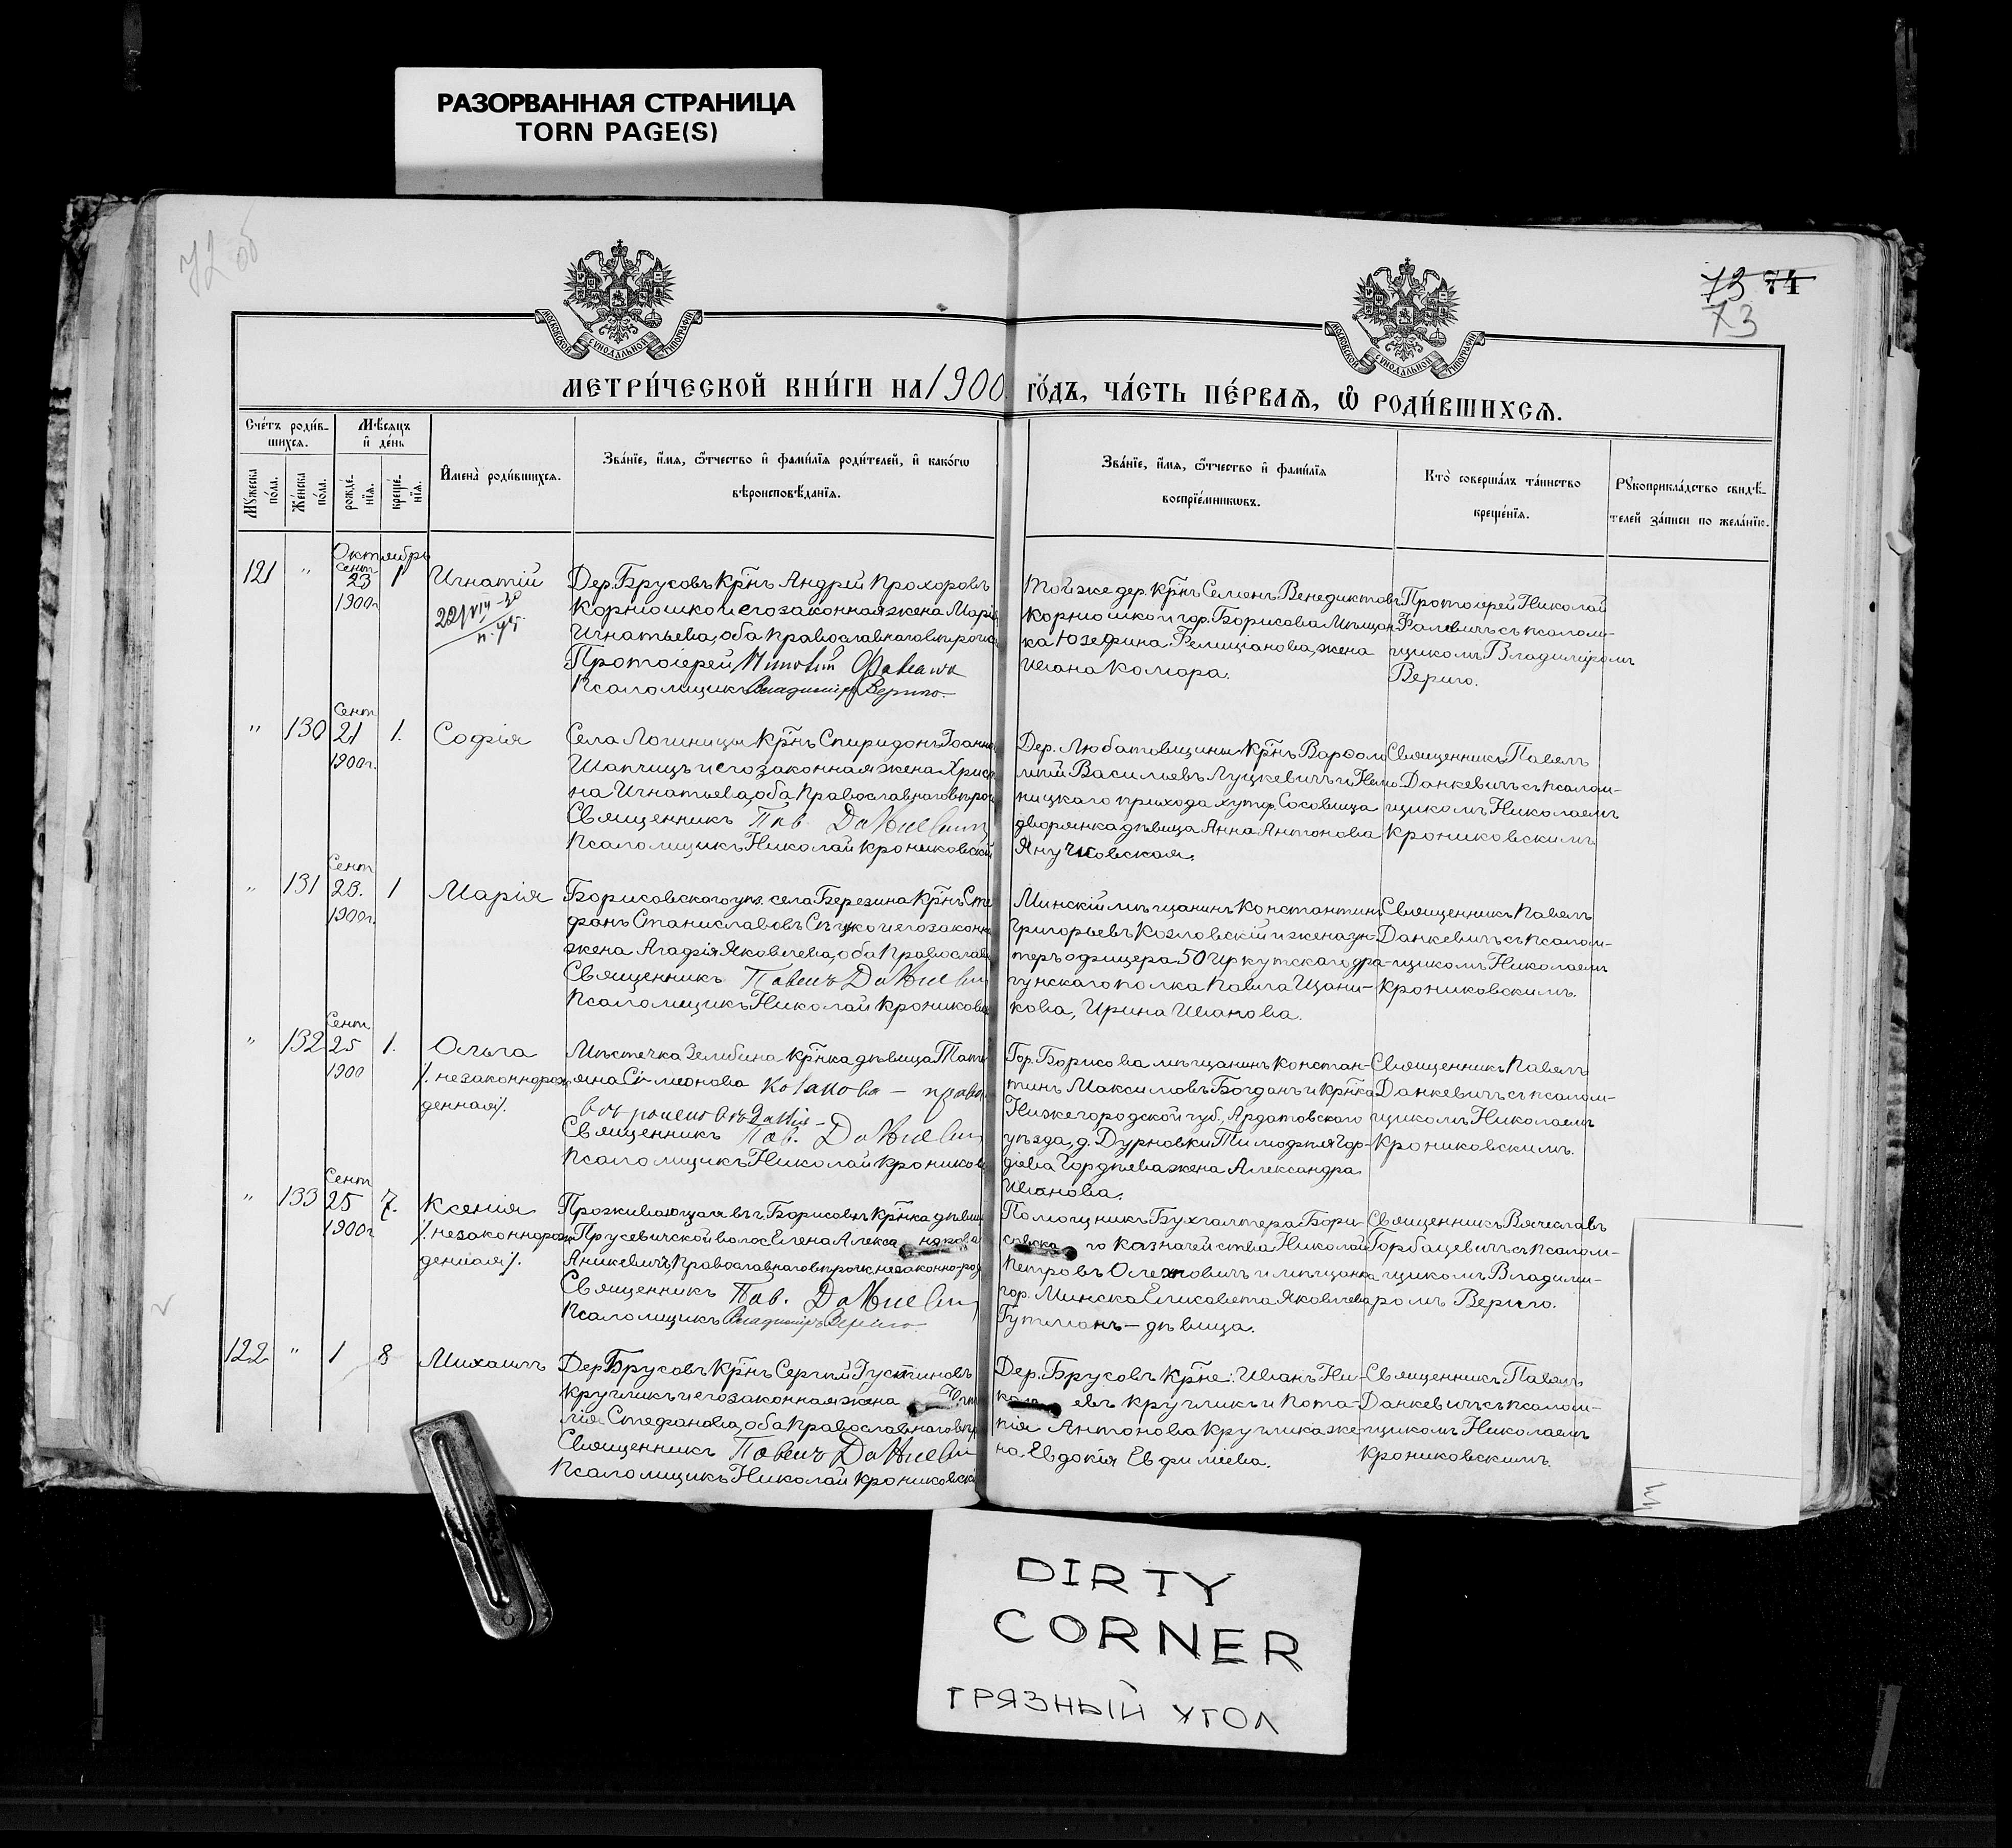 РАЗОРВАННАЯ СТРАНИЦА
TORN PAGE(S)
72 об
73 74
73
МОСКОВСКОЙ СѴНОДАЛЬНОЙ ТИПОГРАФІИ
МОСКОВСКОЙ СѴНОДАЛЬНОЙ ТИПОГРАФІИ
МЕТРИ́ЧЕСКОЙ КНИ́ГИ НА 1900 ГО́ДЪ, ЧА́СТЬ ПЕ́РВАЯ, Ѡ РОДИ́ВШИХСЯ.
Сче́тъ роди́в-
шихся.
Мꙋжеска по́ла.
Же́нска по́ла.
Мѣ́сяцъ и де́нь
рожде́-нїя.
креще́-нїя.
Имена̀ роди́вшихся.
Зва́нїе, и́мя, ѻ́тчество и фами́лїя роди́телей, и како́гѡ
вѣроисповѣ́данїя.
Зва́нїе, и́мя, ѻ́тчество и фами́лїя
воспрїе́мникѡвъ.
Кто̀ соверша́лъ та́инство
креще́нїя.
Рꙋкоприкла́дство свидѣ́-
телей за́писи по жела́нїю.
Октябрь
121 " Сент 23 1900г 1 Игнатій
22/VIII-30
Дер. Брусовъ Кр҃нъ Андрей Прохоровъ
Корнюшко и его законная жена Марія
Игнатьева, оба православнаго вѣроис
Протоіерей Николай Фалевичъ
Псаломщикъ Владиміръ Вериго.
Той же дер. Кр҃нъ Семенъ Венедиктовъ
Корнюшко и гор. Борисова Мѣщан
ка Юзефина Фелиціанова, жена
Ивана Комара.
Протоіерей Николай
Фалевичъ съ псалом-
щикомъ Владиміромъ
Вериго.
" 130 Сент 21 1900г. 1. Софія
Села Лошницы Кр҃нъ Спиридонъ Іоанно
Шапчицъ и его законная жена Христ
на Игнатьева, оба Православнаго вѣрои
Священникъ Пав. Данкевичъ
Псаломщикъ Николай Крониковскій
Дер. Любатовщины Кр҃нъ Варѳоло
мей Васильевъ Луцкевичъ и Нема
ницкаго прихода хутор. Сосновица
дворянка дѣвица Анна Антонова
Янучковская.
Священникъ Павелъ
Данкевичъ съ псалом-
щикомъ Николаемъ
Крониковскимъ
" 131 Сент 28. 1900г. 1 Марія
Борисовскаго уѣз. села Березина Кр҃нъ Сте
фанъ Станиславовъ Спуко и его законн
жена Агафія Яковлева, оба Православн
Священникъ Павелъ Данкевичъ
Псаломщикъ Николай Крониковс
Минскій мѣщанинъ Константинъ
Григорьевъ Козловскій и жена ун-
теръ офицера 50 Иркутскаго дра-
гунскаго полка Павла Щани-
кова, Ирина Иванова.
Священникъ Павелъ
Данкевичъ съ псалом-
щикомъ Николаемъ
Крониковскимъ.
" 132 Сент 25 1900 1. Ольга
/. незаконнорож-
денная/.
Мѣстечка Зембина Кр҃нка дѣвица Тать
яна Симеонова Казакова — право
вѣроисповѣданія —
Священникъ Пав. Данкевичъ
Псаломщикъ Николай Крониковс
Гор. Борисова мѣщанинъ Констан-
тинъ Максимовъ Богданъ и Кр҃нка
Нижегородской губ., Ардатовскаго
уѣзда, д. Дурновки Тимоѳея Гор-
діева Гордѣева жена Александра
Иванова.
Священникъ Павелъ
Данкевичъ съ псалом-
щикомъ Николаемъ
Крониковскимъ.
" 133 Сент 25 1900г 7. Ксенія
/. незаконнорож-
денная/.
Проживающая въ г. Борисовѣ Кр҃нка дѣвиц
Прусевичской волос Елена Алекса ндрова
Аникевичъ, Православнаго вѣроис., незаконно-рож
Священникъ Пав. Данкевичъ
Псаломщикъ Владиміръ Вериго.
Помощникъ Бухгалтера Бори-
совска го Казначейства Николай
Петровъ Олехновичъ и мѣщанка
гор. Минска Елисавета Яковлева
Гутманъ — дѣвица.
Священникъ Вячеславъ
Горбацевичъ съ псалом-
щикомъ Владими-
ромъ Вериго.
122 " 1 8 Михаилъ
Дер. Брусовъ Кр҃нъ Сергій Густиновъ
Кругликъ и его законная жена
лія Стефанова, оба Православнаго вѣр
Священникъ Павелъ Данкевичъ
Псаломщикъ Николай Крониковскі
Дер. Брусовъ Кр҃не: Иванъ Ни-
кола евъ Кругликъ и Пота-
пія Антонова Круглика же-
на, Евдокія Евфиміева.
Священникъ Павелъ
Данкевичъ съ псалом-
щикомъ Николаемъ
Крониковскимъ.
DIRTY
CORNER
ГРЯЗНЫЙ УГОЛ